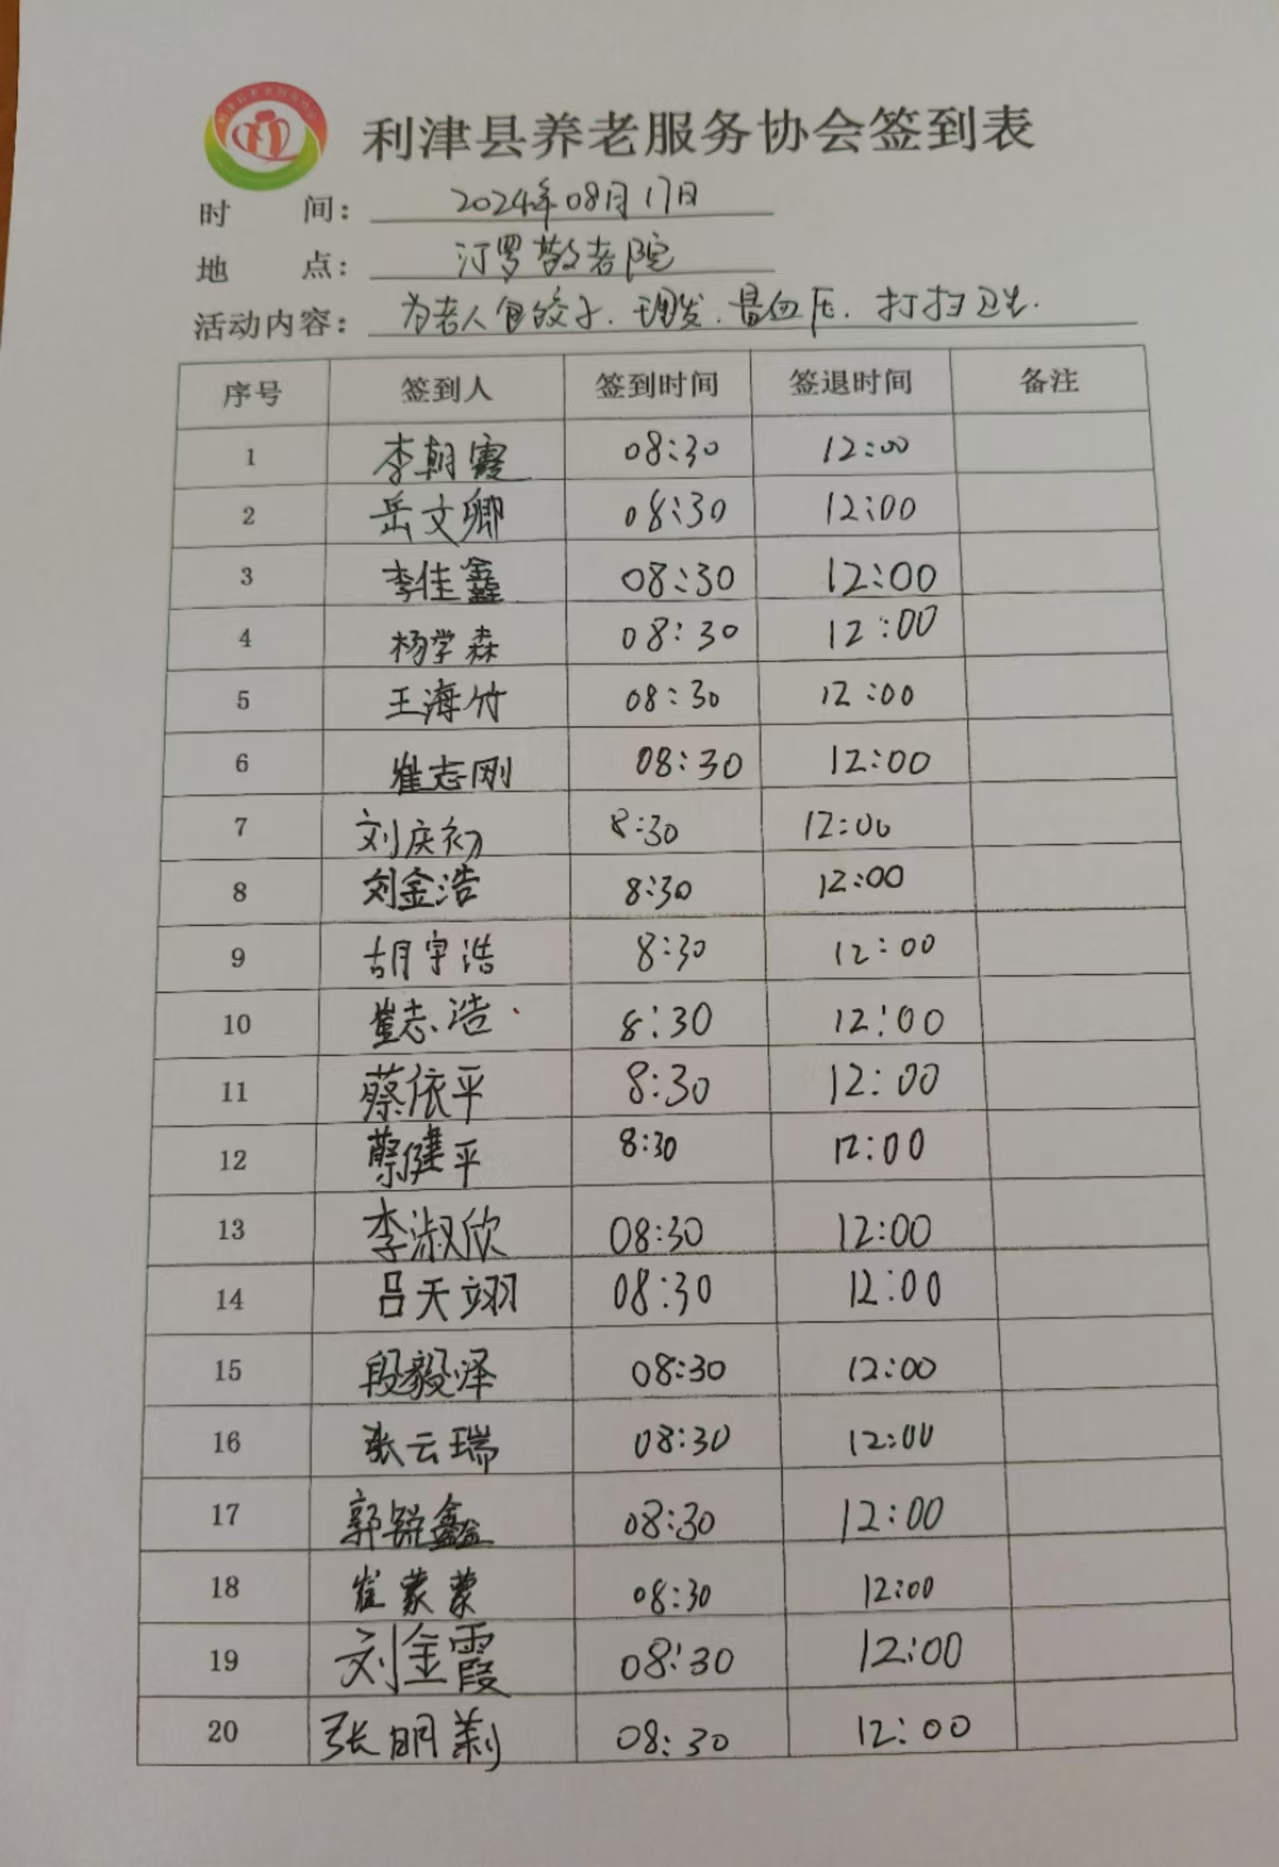 利津县养老服务协会签到表
时 间： 2024年08月17日
地 点： 汀罗敬老院
活动内容： 为老人包饺子、理发、量血压、打扫卫生.
序号 签到人 签到时间 签退时间 备注
1 李朝霞 08:30 12:00
2 岳文卿 08:30 12:00
3 李佳鑫 08:30 12:00
4 杨学森 08:30 12:00
5 王海竹 08:30 12:00
6 崔志刚 08:30 12:00
7 刘庆初 8:30 12:00
8 刘金浩 8:30 12:00
9 胡宇浩 8:30 12:00
10 崔志浩 8:30 12:00
11 蔡依平 8:30 12:00
12 蔡健平 8:30 12:00
13 李淑欣 08:30 12:00
14 吕天翊 08:30 12:00
15 段毅泽 08:30 12:00
16 张云瑞 08:30 12:00
17 郭锐鑫 08:30 12:00
18 崔蒙蒙 08:30 12:00
19 刘金霞 08:30 12:00
20 张明 08:30 12:00